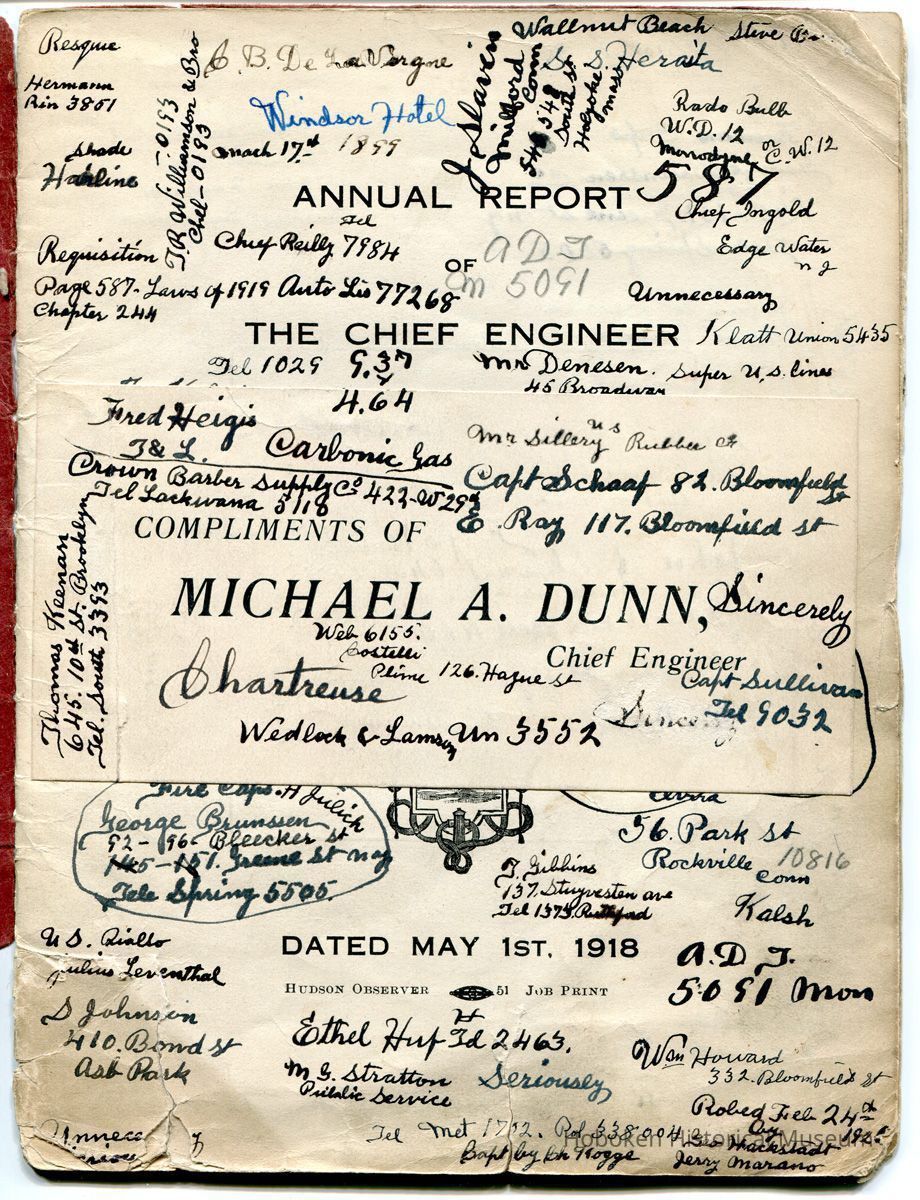 Resque
Hermann
Rin 3861
Shade
Hairline
T.R. Williamson & Bro
Chel-0193
C. B. De La Vergne
Windsor Hotel
mach 17th 1899
J. Slavin
Milford
Conn
546 548
South St
Holyoke
mass
Wallnut Beach
Steve
S. S. Herasta
Rado Bulb
W.D. 12
Monodyne or C. W. 12
587
Chief Ingold
Edge Water
N J
ANNUAL REPORT
Tel
Chief Reilly 7984
OF
A D T
Em 5091
Requisition
Page 587-Laws of 1919 Auto Lis 77268
Chapter 244
Unnecessary
THE CHIEF ENGINEER
Klatt Union 5435
Tel 1029
9.37
4.64
Mr Denesen. Super U.S. Lines
45 Broadway
Fred Heigis
T & L.
Carbonic Gas
Crown Barber Supply Co 422-W 29th
Tel Lackwana 5118
Mr Sillery U S Rubber Co
Capt Schaaf 82. Bloomfield St
E. Ray 117. Bloomfield St
COMPLIMENTS OF
MICHAEL A. DUNN,
Sincerely
Chief Engineer
Thomas Keenan
645. 10th St. Brooklyn
Tel. South 3393
Web 6155.
Costelli
Plime 126. Hague St
Chartreuse
Capt Sullivan
Tel 9032
Wedlock & Lamson Un 3552
Fire Caps. H Julich
George Brunssen
92-96- Bleecker St
145-151. Greene St N.Y
Tele Spring 5505.
76. Park St
Rockville
Conn
10816
Kalsh
F. Gibbins
137. Stuyvesten ave
Tel 1373. Ruthford
U S. Rialto
Julius Leventhal
DATED MAY 1ST, 1918
HUDSON OBSERVER 51 JOB PRINT
A. D. T.
5091 Mon
S Johnson
410. Bond St
Asb Park
Ethel Huf Td 2463.
M. G. Stratton
Publlic Service
Seriously
Wm Howard
332. Bloomfield St
Robed Feb 24th
by
Geo Hackstadt
Jerry Marano
Tel Met 1702. Pol 338004
Bapt by Ch Kogge
Hoboken Historical Museum